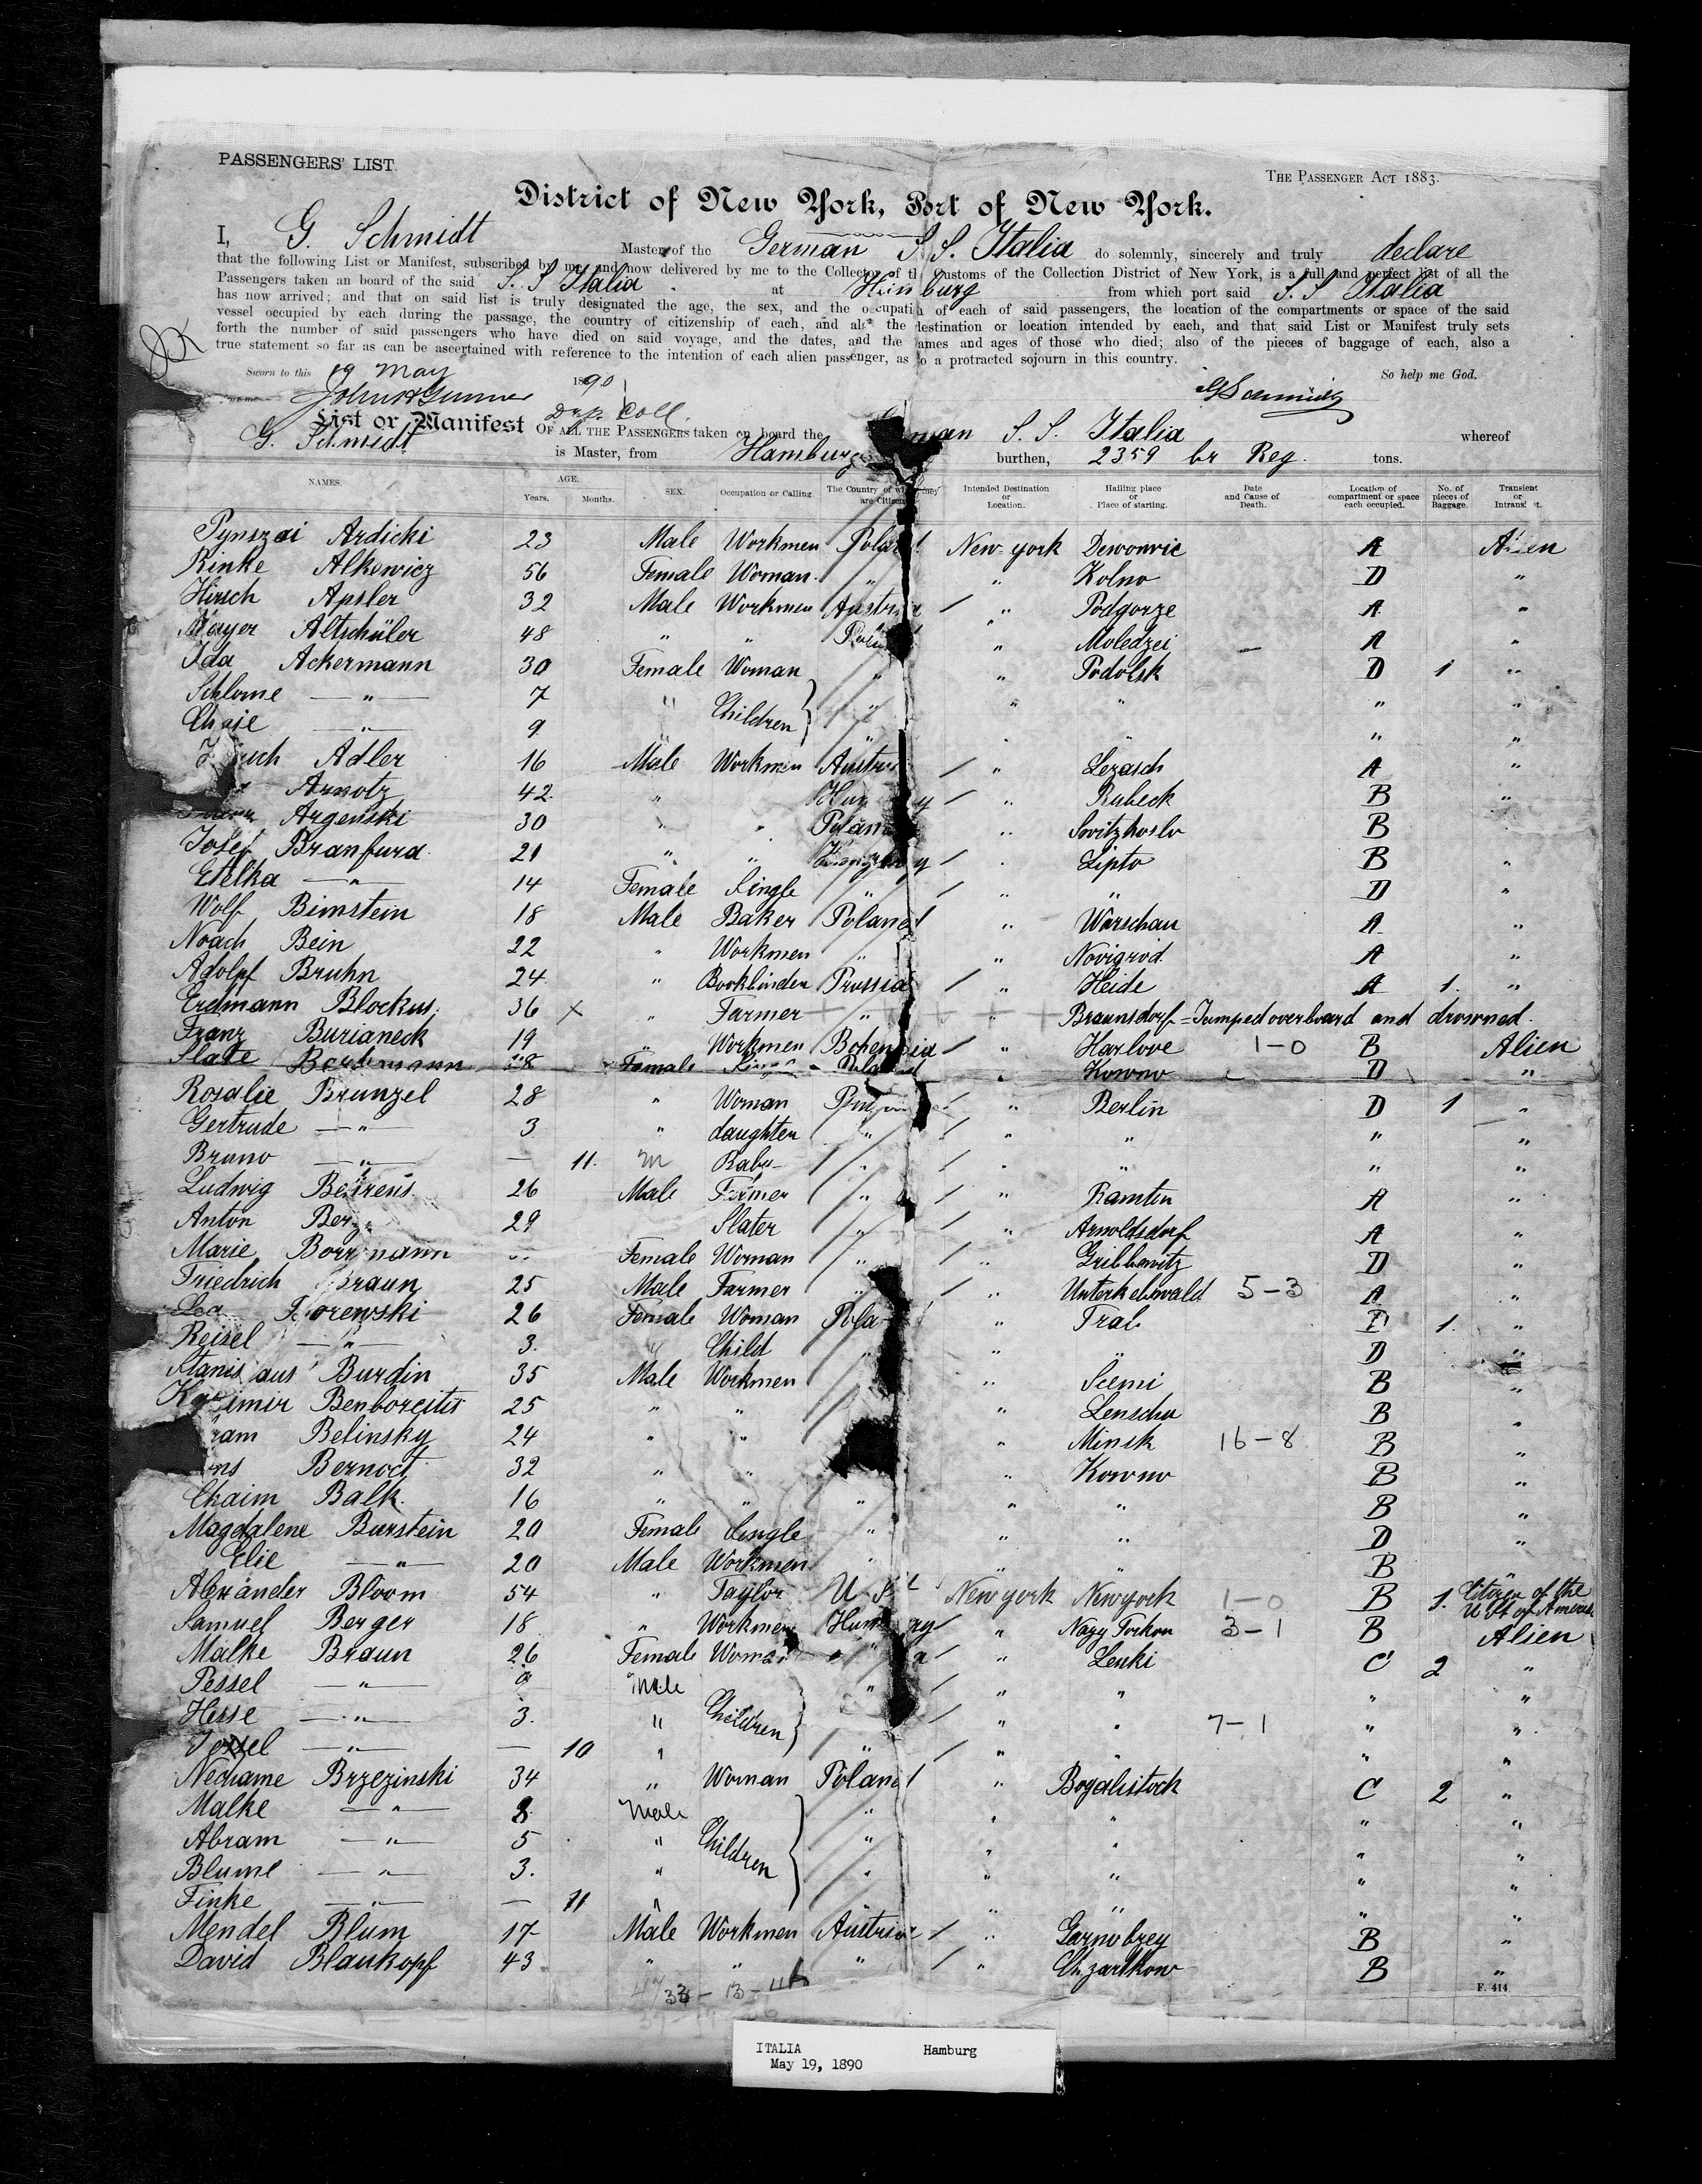 PASSENGERS' LIST.
THE PASSENGER ACT 1883.
District of New York, Port of New York.
I, G. Schmidt Master of the German S.S. Italia do solemnly, sincerely and truly declare
that the following List or Manifest, subscribed by me, and now delivered by me to the Collector of the Customs of the Collection District of New York, is a full and perfect list of all the
Passengers taken on board of the said S.S Italia at Hamburg from which port said S.S Italia
has now arrived; and that on said list is truly designated the age, the sex, and the occupation of each of said passengers, the location of the compartments or space of the said
vessel occupied by each during the passage, the country of citizenship of each, and also the destination or location intended by each, and that said List or Manifest truly sets
forth the number of said passengers who have died on said voyage, and the dates, and the names and ages of those who died; also of the pieces of baggage of each, also a
true statement so far as can be ascertained with reference to the intention of each alien passenger, as to a protracted sojourn in this country.
Sworn to this 19 May 1890
So help me God.
Dep. Coll.
List or Manifest OF ALL THE PASSENGERS taken on board the German S.S. Italia whereof
G. Schmidt is Master, from Hamburg burthen, 2359 br Reg. tons.
NAMES. AGE. Years. Months. SEX. Occupation or Calling. The Country of which they are Citizens. Intended Destination or Location. Hailing place or Place of starting. Date and Cause of Death. Location of compartment or space each occupied. No. of pieces of Baggage. Transient or Intransient.
Ardicki 23 Male Workmen Poland New-york A Alien
Rinke Alkewicz 56 Female Woman " " Kolno D "
Hirsch Apsler 32 Male Workmen Austria / " Podgorze A "
Mayer Altschüler 48 " " " Moledzei A "
Ida Ackermann 30 Female Woman " " Podolsk D 1 "
Schlome " 7 " Children " " " " "
Chaje " 9 " " " " " "
Adler 16 Male Workmen Austria / " Lezasch A "
Arnotz 42 " Hungary / " Rubeck B "
Argenski 30 " " Poland " Switzkoslo B
Josef Branfurd 21 " " Hungary / " Lipto B "
Etelka " 14 Female Single " / " " D "
Wolf Bimstein 18 Male Baker Poland " Warschau A "
Noach Bein 22 " Workmen " " Novigrod A "
Adolf Bruhn 24 " Bookbinder Prussia / " Heide A 1. "
Erdmann Blockus 36 X " Farmer " " Braunsdorf = Jumped overboard and drowned.
Franz Burianeck 19 " Workmen Bohemia / " Harlove 1-0 B Alien
Slate 28 Female Single Poland " Kowno D "
Rosalie Brunzel 28 " Woman / " Berlin D 1 "
Gertrude " 3 " daughter " / " " " "
Bruno " — 11. m Baby " / " " " "
Ludwig Behrens 26 Male Farmer " / " Ramten A "
Anton 29 Slater " / " Arnoldsdorf A "
Marie Borrmann Female Woman " / " Gribbowitz D "
Friedrich Braun 25 Male Farmer " / " Unterkehwald 5-3 A "
Lea 26 Female Woman Poland " D 1. "
Reisel " 3. " Child " " " D "
Stanislaus Burdin 35 Male Workmen " Seemi B "
Kasimir Benboreitis 25 " " " Lenschu B "
Belinsky 24 " " " Minsk 16-8 B "
Bernoct 32 " " " Kowno B "
Chaim Balk 16 " " " " " B "
Magdalene Burstein 20 Female Single " " " D "
Elie " 20 Male Workmen " " " B "
Alexander Bloom 54 " Taylor U St New york New york 1-0 B 1. Citizen of the U St of America
Samuel Berger 18 " Workmen Hungary / " Nagy Torkon 3-1 B Alien
Malke Braun 26 Female Woman " / " Lenki C 2 "
Pessel " 9 male " / " " " "
Hesse " 3. " Children / " " 7-1 " "
" — 10 " " / " " " "
Nechame Brzezinski 34 " Woman Poland " Bogalistock C 2 "
Malke " 8 male " " " " "
Abram " 5 " Children " " " " "
Blume " 3. " " " " " "
Finke " — 11 " " " " "
Mendel Blum 17 Male Workmen Austria / " Garnobzey B "
David Blaukopf 43 " " " / " Chzartkow B "
F. 414
ITALIA Hamburg
May 19, 1890